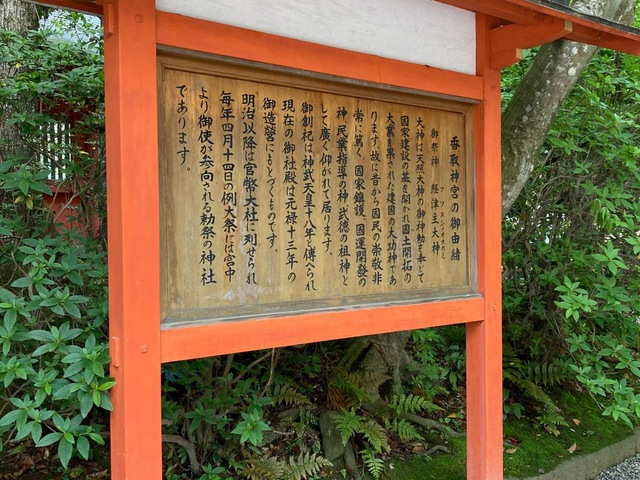 香取神宮の御由緒
御祭神 経津主大神
フツヌシノオオカミ
大神は天照大神の御神勅を奉じて
国家建設の基を開かれ国土開拓の
大業を果された建国の大功神であ
ります。故に昔から国民の崇敬非
常に篤く、國家鎮護、國運開発の
神、民業指導の神、武徳の祖神と
して廣く仰がれて居ります。
御創祀は神武天皇十八年と傳へられ
現在の御社殿は元禄十三年の
御造營にもとづくものです。
明治以降は官幣大社に列せられ
毎年四月十四日の例大祭には宮中
より御使が参向される勅祭の神社
であります。